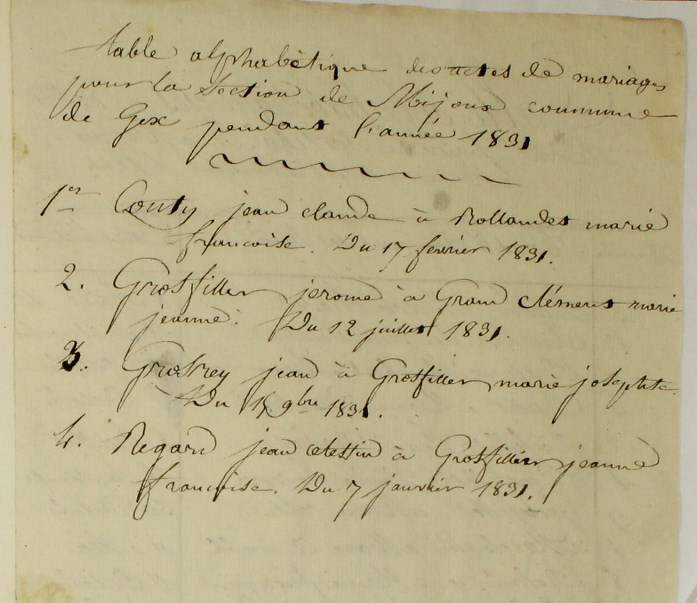 table alphabétique des actes de mariages
pour la section de Mijoux commune
de Gex pendant l'année 1831
1er Couty jean claude à Rollandet marie
francoise. Du 17 fevrier 1831.
2. Grosfiller jerome à Grand clément marie
jeanne. Du 12 juillet 1831.
3. Grosrey jean à Grosfiller marie josephte.
Du 9bre 1831.
4. Regard jean celestin à Grosfiller jeanne
francoise. Du 7 janvier 1831.